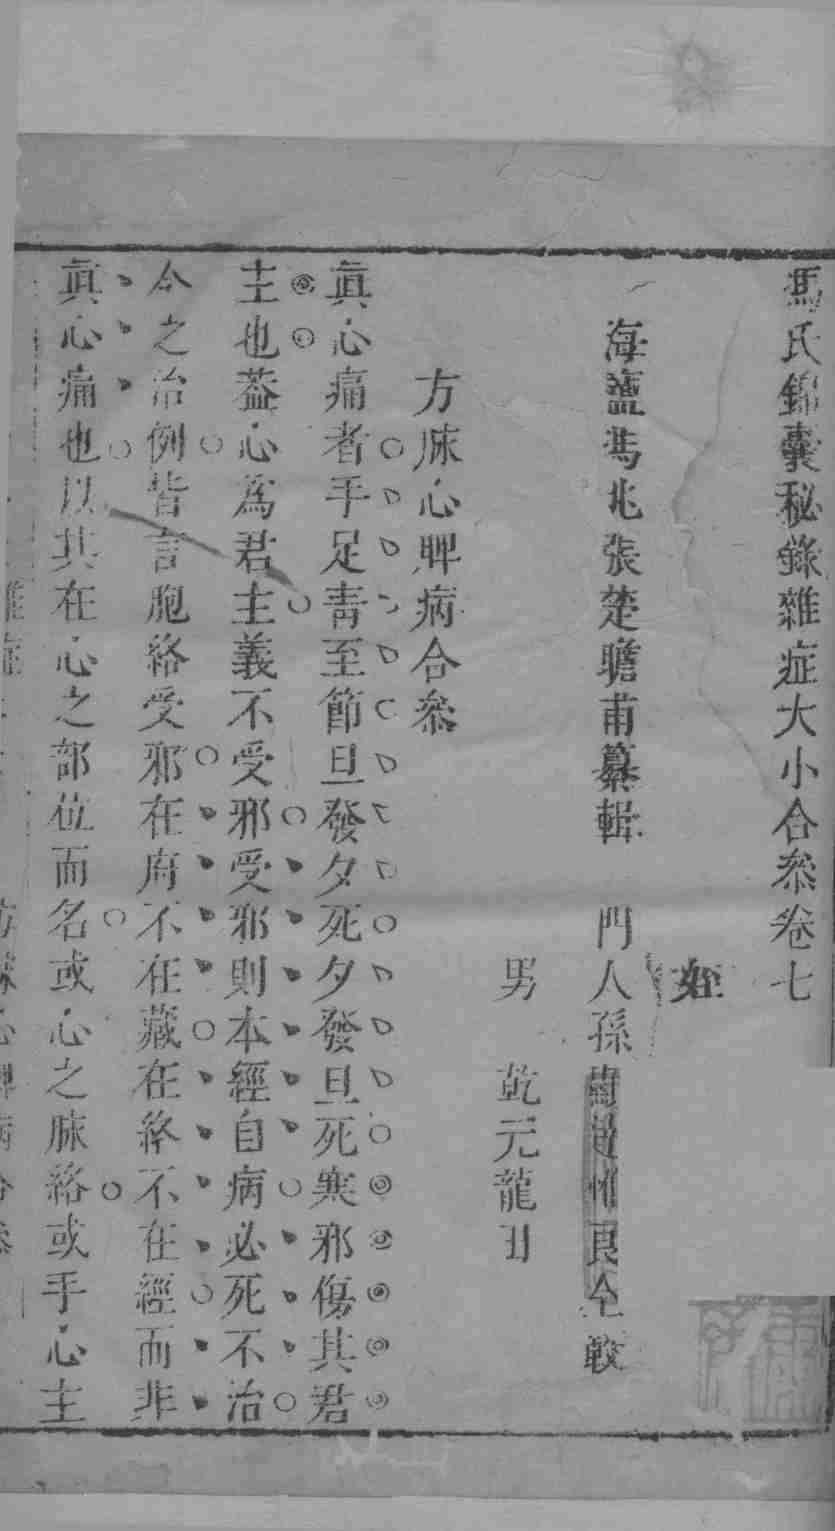 馮氏錦囊秘錄雜症大小合叅卷七
姪
海鹽馮兆張楚瞻甫纂輯　門人孫　良仝較
男　乾元龍田
方脉心脾病合叅
眞心痛者手足靑至節旦發夕死夕發旦死寒邪傷其君
主也葢心爲君主義不受邪受邪則本經自病必死不治
今之治例皆言胞絡受邪在府不在藏在絡不在經而非
眞心痛也以其在心之部位而名或心之脉絡或手心主